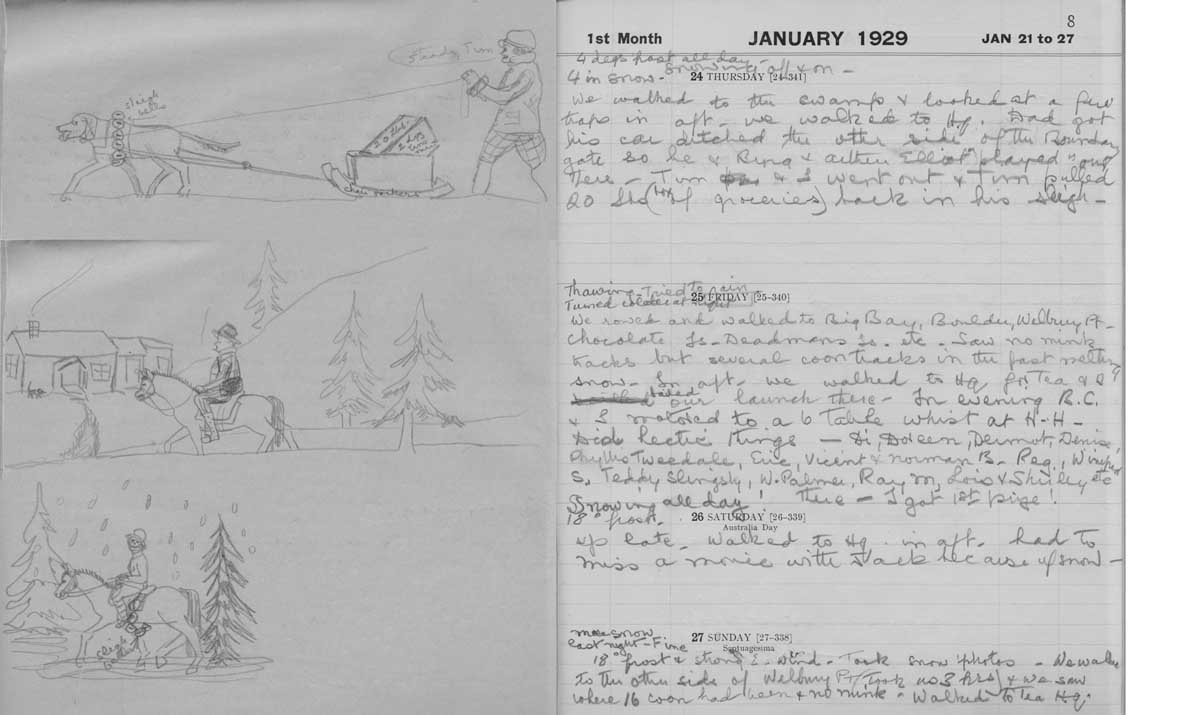 Steady Turn
sleigh
bells
20 lbs.
chair rockers
sleigh
bells
8
1st Month JANUARY 1929 JAN 21 to 27
4 degs frost all day -
4 in snow - Snowing off & on -
24 THURSDAY [24-341]
We walked to the swamp & looked at a few
traps in aft - we walked to Hq. Dad got
his car ditched the other side of the Boundary
gate so he & Ring & Elliot played
there - & I went out & pulled
20 lbs (box of groceries) back in his sleigh -
Thawing - Tried to rain
Turned colder at night
25 FRIDAY [25-340]
We rowed and walked to Big Bay, Boulder, Welbury Pt -
Chocolate Is - Deadmans Is. etc - Saw no mink
tracks but several coon tracks in the fast melting
snow - In aft - we walked to Hq for Tea &
bailed our launch there - In evening B.C.
& I motored to a 6 Table whist at H-H -
Did hectic things - Di, Doreen, Dermot, Denise,
Phyllis Tweedale, Eric, Vicent & Norman B - Reg.,
S, Teddy Slingsby, W. Palmer, Ray M, Lois & Shirley etc
there - I got 1st prize!
Snowing all day!
18° frost.
26 SATURDAY [26-339]
Australia Day
up late - Walked to Hq. in aft - had to
miss a movie with Jack because of snow -
more snow
last night - Fine
27 SUNDAY [27-338]
Septuagesima
18° frost & strong E - wind - Took snow photos - We walked
to the other side of Welbury Pt (Took us 3 hrs) & we saw
where 16 coon had been & no mink - Walked to Tea Hq.